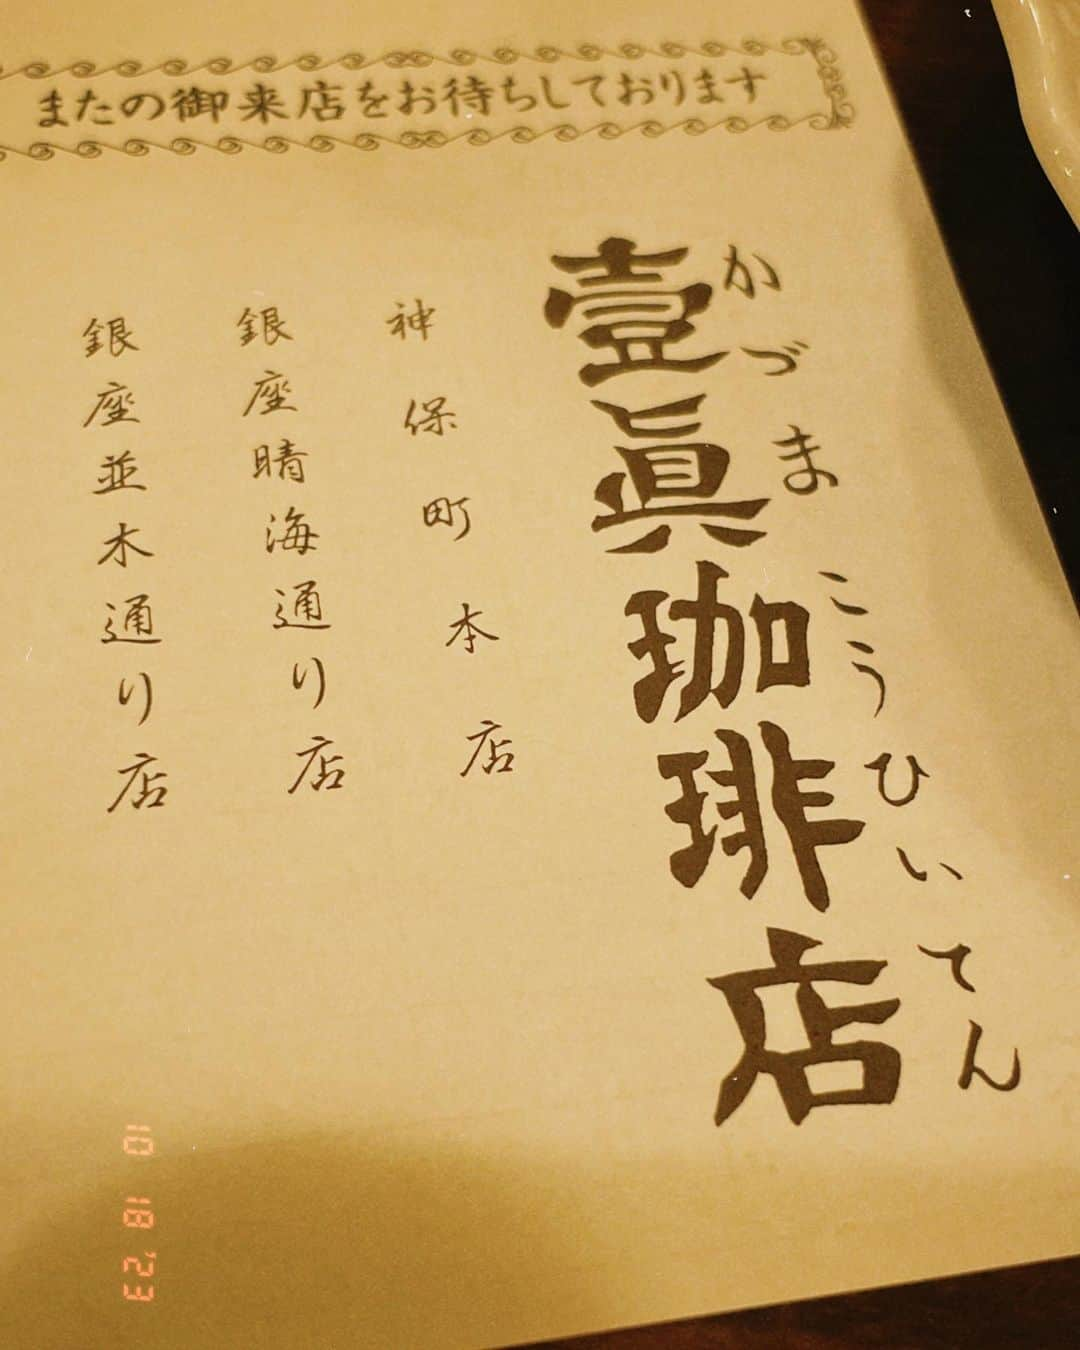 またの御来店をお待ちしております
かづま こうひいてん
壹眞珈琲店
神保町本店
銀座晴海通り店
銀座並木通り店
10 18 '23